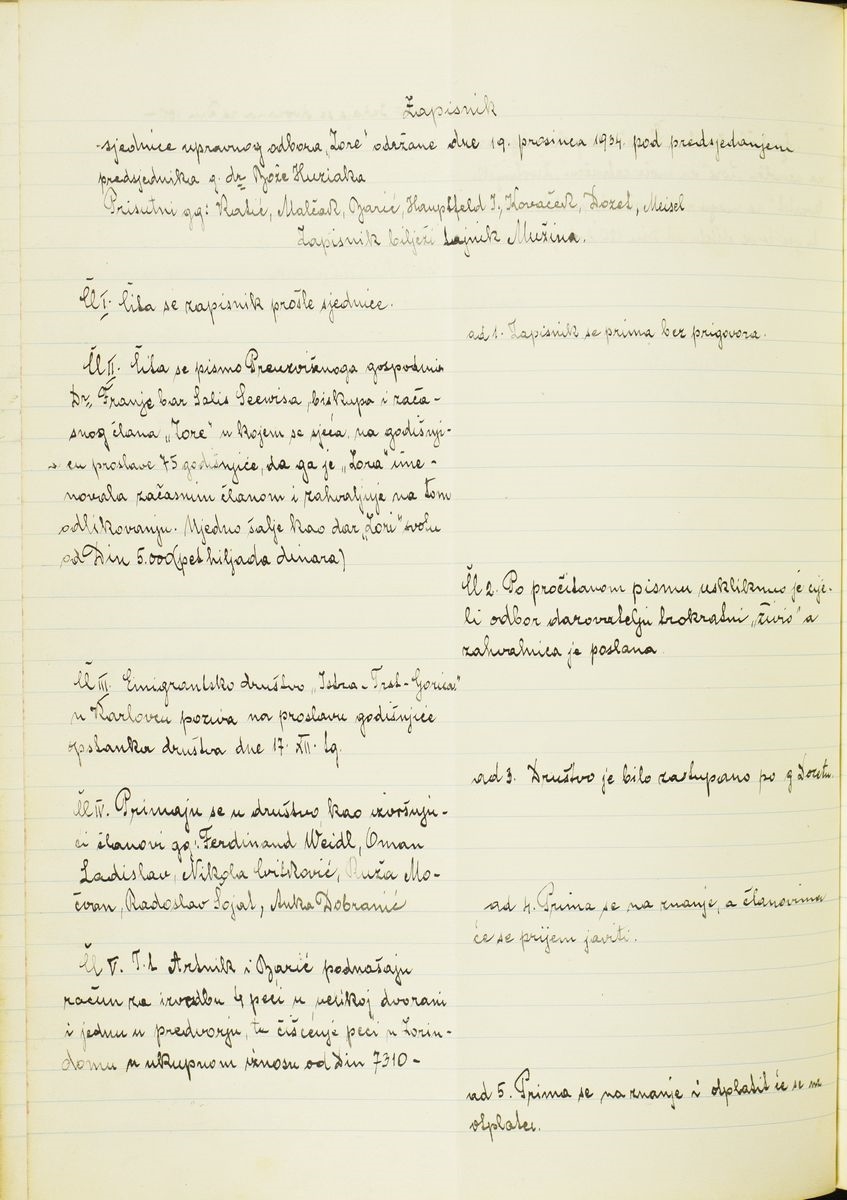 Zapisnik
sjednice upravnog odbora „Zore" održane dne 19. prosinca 1934. pod predsjedanjem
predsjednika g. dr Bože Huziaka
Prisutni gg: Katić, Malčak, Barić, Hauptfeld I., Kovaček, Dozet, Meisel
Zapisnik bilježi tajnik Mužina.
Čl I. Čita se zapisnik prošle sjednice.
ad 1. Zapisnik se prima bez prigovora.
Čl II. Čita se pismo Preuzvišenoga gospodina
Dr. Franje bar Salis Seewisa, biskupa i zača-
snog člana „Zore" u kojem se sjeća, na godišnji-
cu proslave 75 godišnjice, da ga je „Zora" ime-
novala začasnim članom i zahvaljuje na tom
odlikovanju. Ujedno šalje kao dar „Zori" svotu
od Din 5.000 (pet hiljada dinara)
Čl 2. Po pročitanom pismu uskliknuo je cije-
li odbor darovatelju trokratni „živio" a
zahvalnica je poslana
Čl III. Emigrantsko društvo „Istra-Trst-Gorica"
u Karlovcu poziva na proslavu godišnjice
opstanka društva dne 17. XII. tg.
ad 3. Društvo je bilo zastupano po g Dozetu.
Čl IV. Primaju se u društvo kao izvršuju-
ći članovi gg: Ferdinand Weidl, Oman
Ladislav, Nikola Cvitković, Ruža Mo-
čvan, Radoslav Šojat, Anka Dobranić
ad 4. Prima se na znanje, a članovima
će se prijem javiti.
Čl V. T.t. Artnik i Barić podnašaju
račun za izvedbu 4 peći u velikoj dvorani
i jednu u predvorju, te čišćenje peći u Zorin-
domu u ukupnom iznosu od Din 7310-
ad 5. Prima se na znanje i otplatit će se na
otplate.